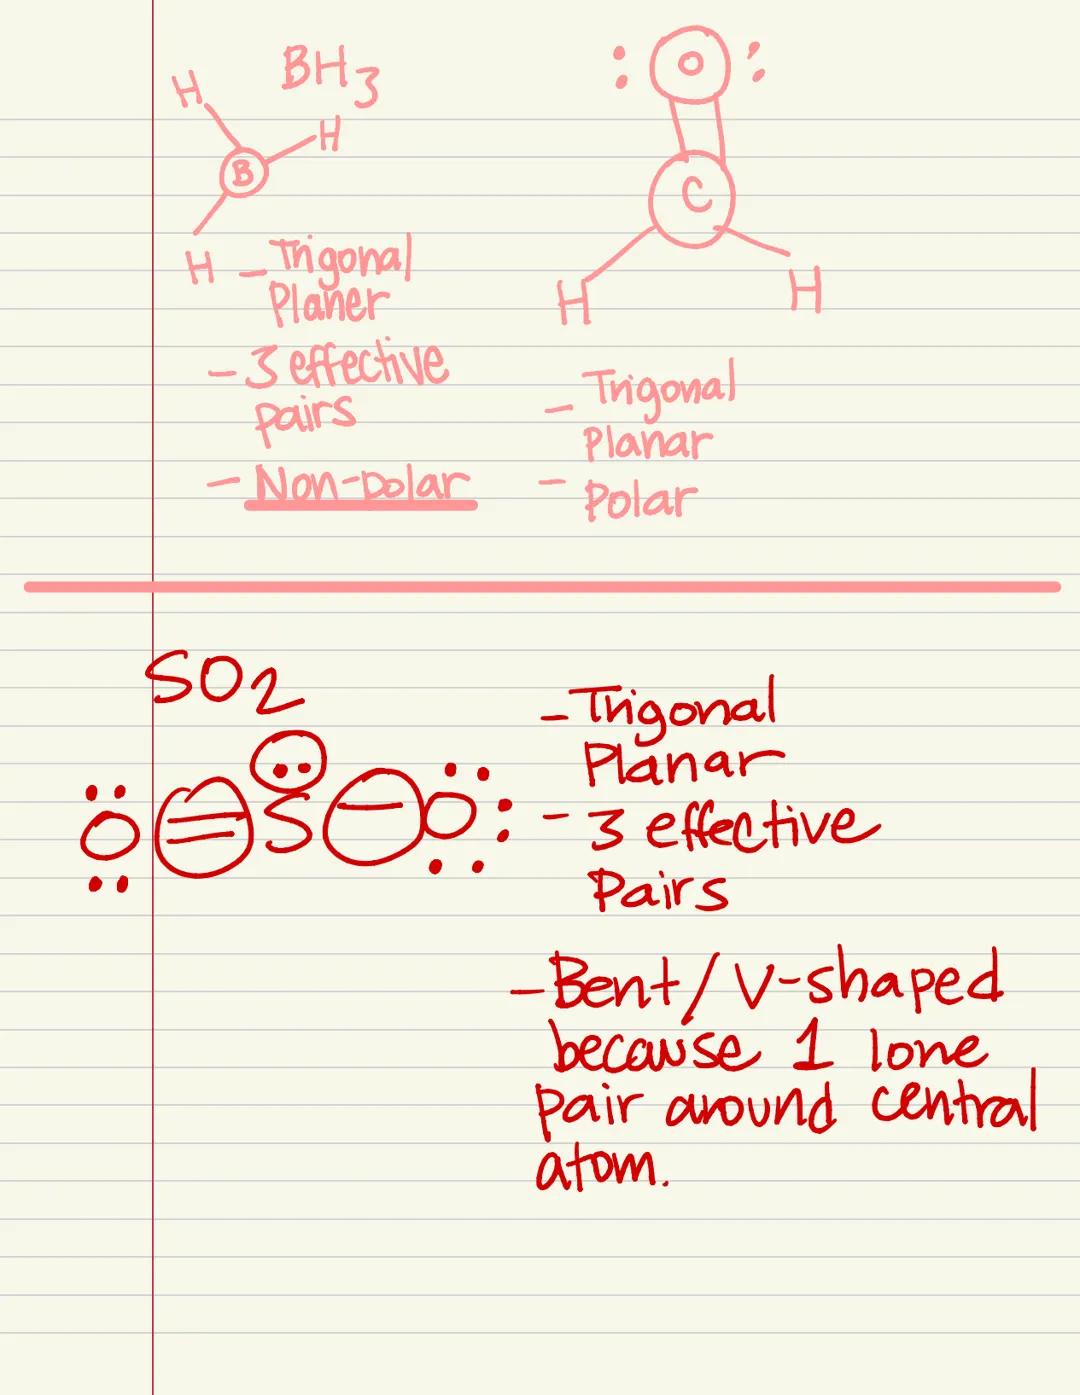 BH3
H
H
B
H
- Trigonal
Planer
- 3 effective
pairs
- Non-polar
: O :
C
H H
- Trigonal
Planar
- Polar
SO2
O = S - O
- Trigonal
Planar
- 3 effective
Pairs
- Bent/V-shaped
because 1 lone
pair around central
atom.